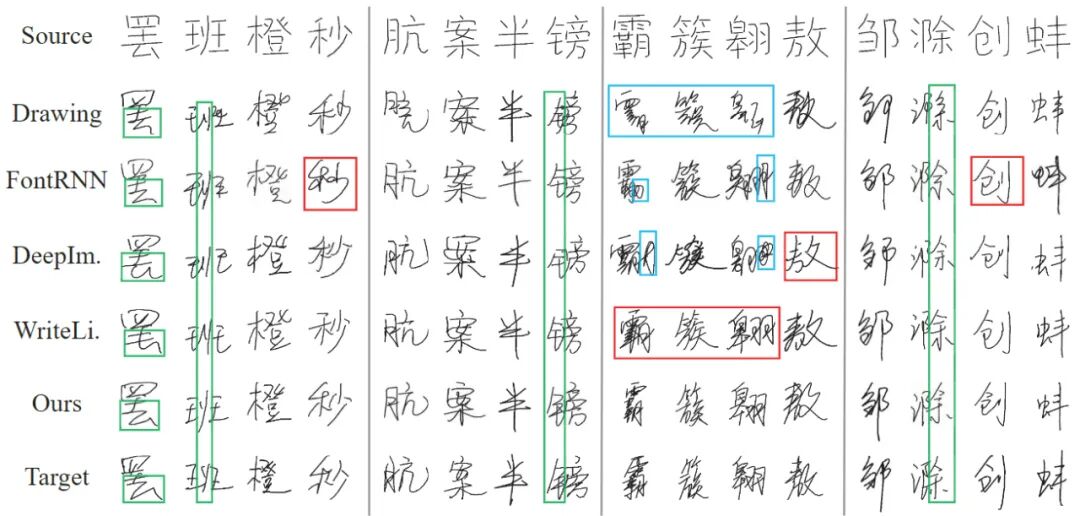 Source 罢 班 橙 秒 肮 案 半 镑 霸 簇 翱 敖 邹 滁 创 蚌
Drawing 罢 班 橙 秒 肮 案 半 镑 霸 簇 翱 敖 邹 滁 创 蚌
FontRNN 罢 班 橙 秒 肮 案 半 镑 霸 簇 翱 敖 邹 滁 创 蚌
DeepIm. 罢 班 橙 秒 肮 案 半 镑 霸 簇 翱 敖 邹 滁 创 蚌
WriteLi. 罢 班 橙 秒 肮 案 半 镑 霸 簇 翱 敖 邹 滁 创 蚌
Ours 罢 班 橙 秒 肮 案 半 镑 霸 簇 翱 敖 邹 滁 创 蚌
Target 罢 班 橙 秒 肮 案 半 镑 霸 簇 翱 敖 邹 滁 创 蚌